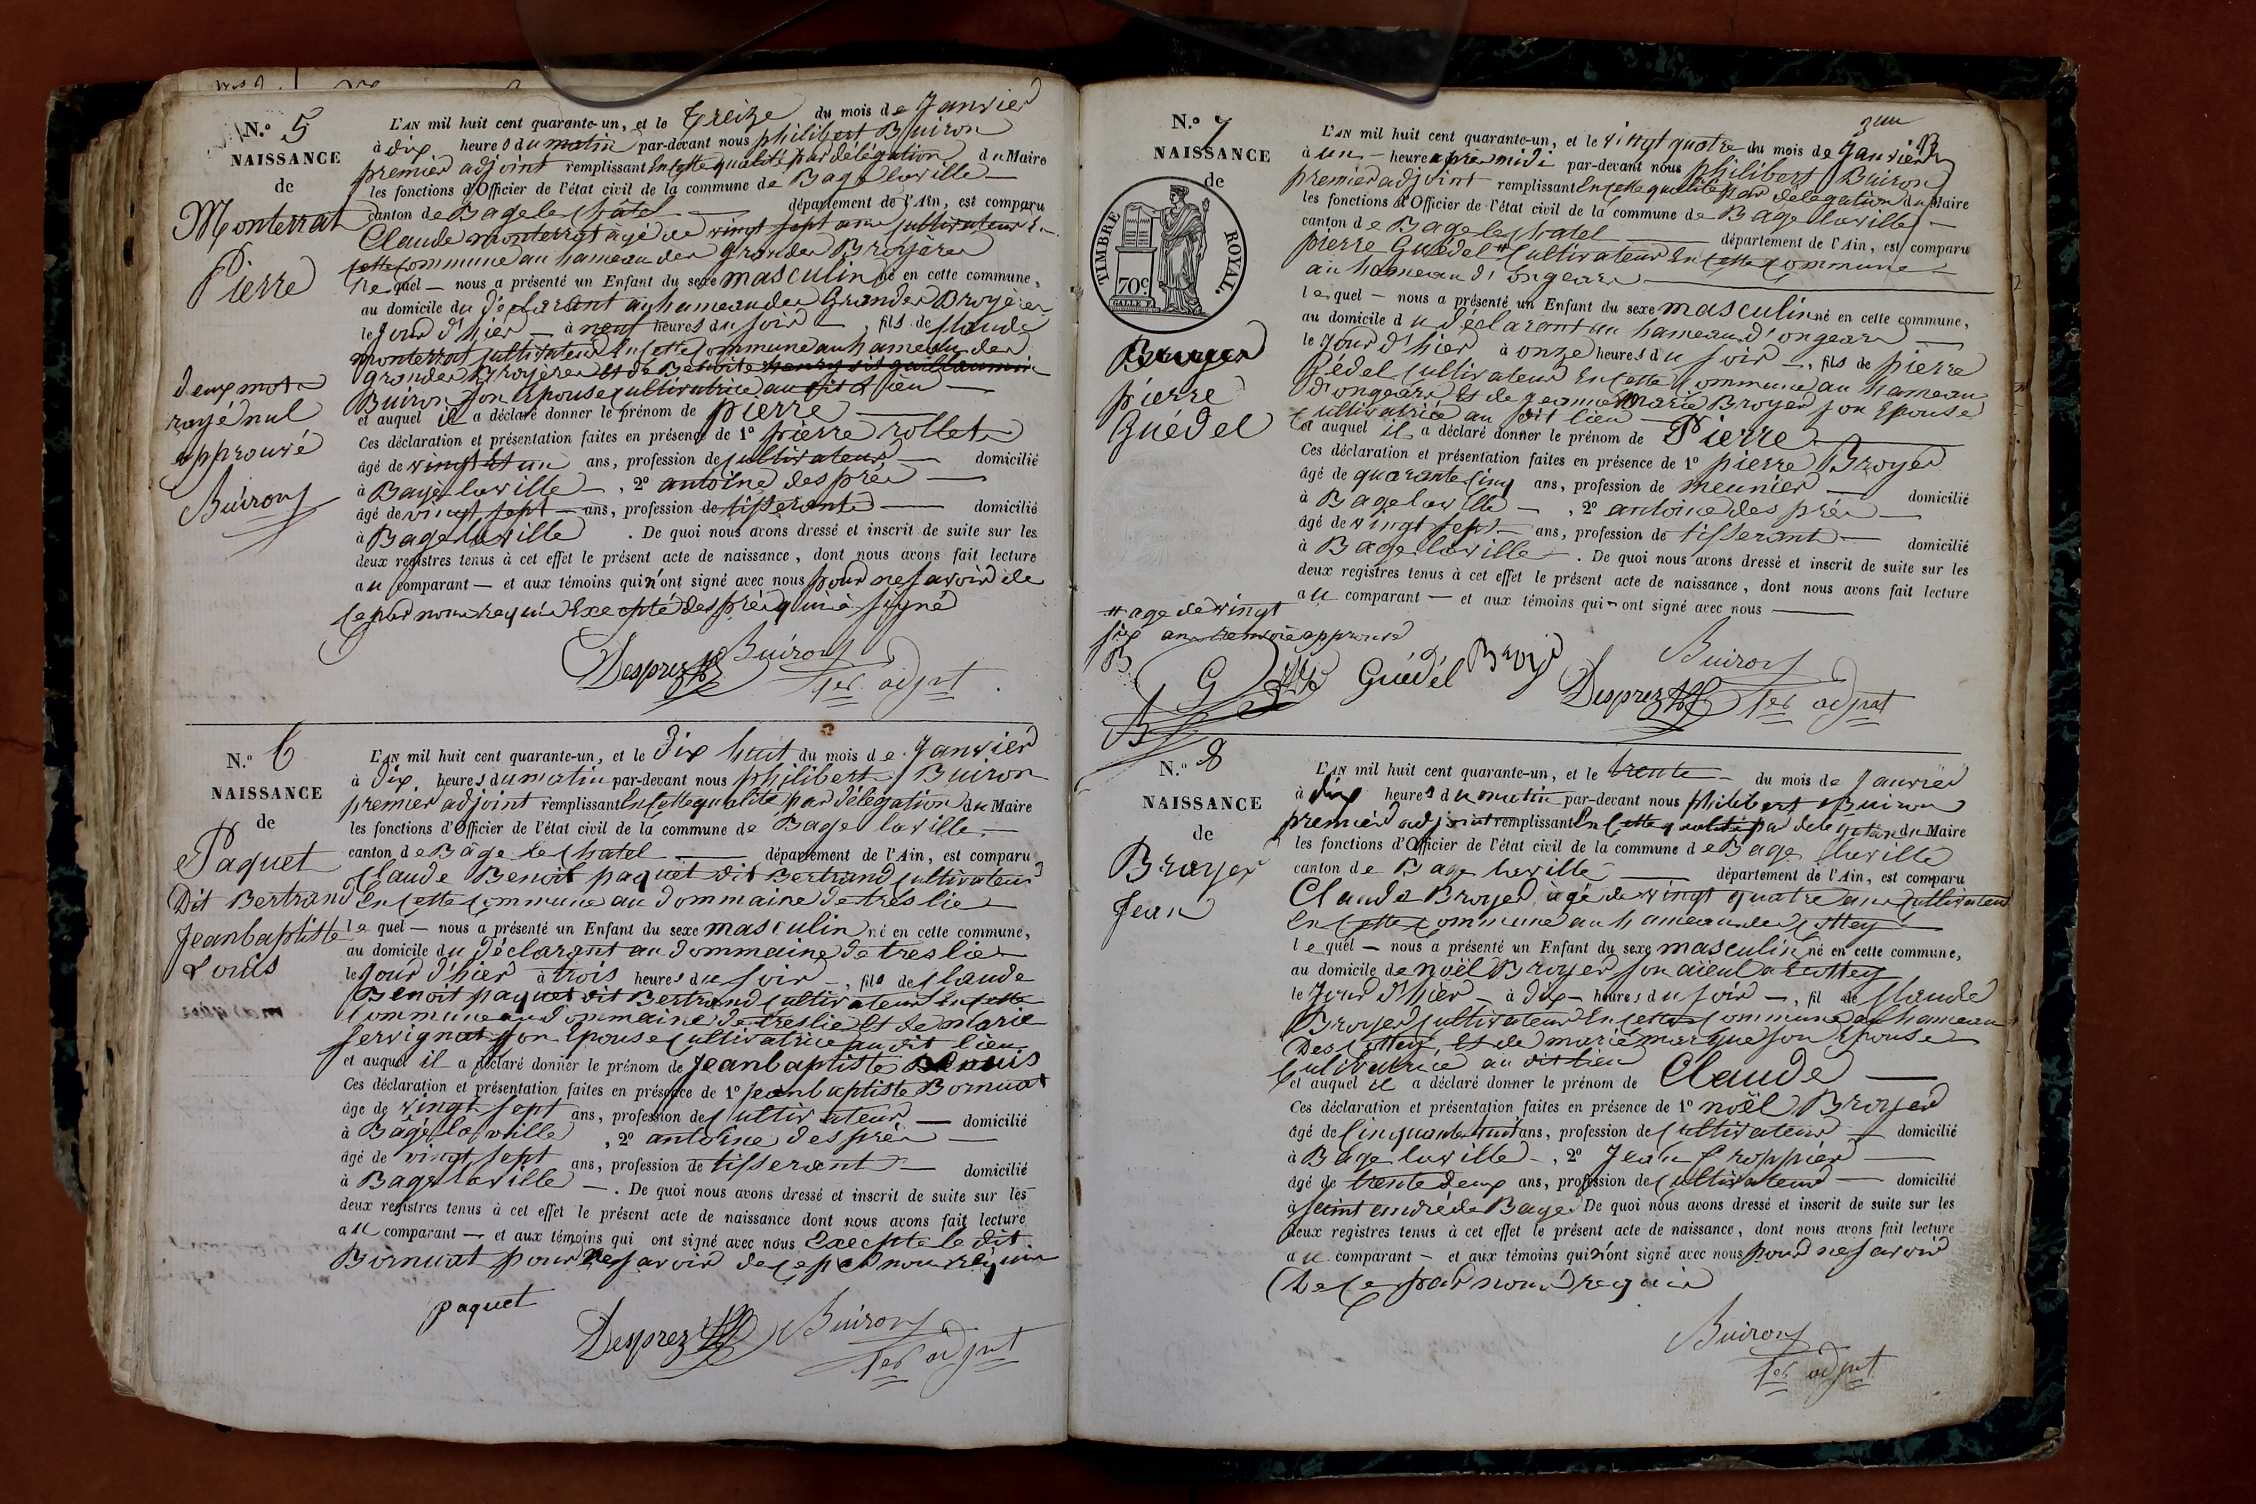 N.º 5
NAISSANCE
de
Monterrat
Pierre
deux mots
rayé nul
approuvé
Buiron
L'AN mil huit cent quarante-un, et le treize du mois de Janvier
à dix heures du matin par-devant nous philibert Buiron
premier adjoint remplissant en cette qualité par délégation du Maire
les fonctions d'Officier de l'état civil de la commune de Bagé laville
canton de Bagé le Châtel département de l'Ain, est comparu
Claude monterrat agé de vingt sept ans cultivateur en
cette commune au hameau des grandes Broyères
lequel nous a présenté un Enfant du sexe masculin né en cette commune,
au domicile du déclarant au hameau des Grandes Broyères
le jour d'hier à neuf heures du soir, fils de Claude
monterrat cultivateur en cette commune au hameau des
grandes Broyères et de Benoite
Buiron son épouse cultivatrice au dit lieu
et auquel il a déclaré donner le prénom de pierre
Ces déclaration et présentation faites en présence de 1º pierre rollet
âgé de vingt et un ans, profession de cultivateur domicilié
à Bagé laville, 2º antoine després
âgé de vingt sept ans, profession de tisserant domicilié
à Bagé laville. De quoi nous avons dressé et inscrit de suite sur les
deux registres tenus à cet effet le présent acte de naissance, dont nous avons fait lecture
au comparant et aux témoins qui n'ont signé avec nous pour ne savoir de
ce par nous requis excepté després qui à signé
Desprez Buiron
1er adjnt
N.º 6
NAISSANCE
de
Paquet
Dit Bertrand
Jeanbaptiste
Louis
L'AN mil huit cent quarante-un, et le dix huit du mois de Janvier
à dix heures du matin par-devant nous philibert Buiron
premier adjoint remplissant en cette qualité par délégation du Maire
les fonctions d'Officier de l'état civil de la commune de Bagé laville
canton de Bâgé le Chatel département de l'Ain, est comparu
Claude Benoit paquet dit Bertrand cultivateur
en cette commune au dommaine de treslie
lequel nous a présenté un Enfant du sexe masculin né en cette commune,
au domicile du déclarant au dommaine de treslie
le jour d'hier à trois heures du soir, fils de Claude
Benoit paquet dit Bertrand cultivateur en cette
commune au dommaine de treslie et de marie
servignat son épouse cultivatrice au dit lieu
et auquel il a déclaré donner le prénom de Jeanbaptiste Louis
Ces déclaration et présentation faites en présence de 1º Jeanbaptiste Bornuat
âgé de vingt sept ans, profession de cultivateur domicilié
à Bagé la ville, 2º antoine després
âgé de vingt sept ans, profession de tisserant domicilié
à Bagé laville. De quoi nous avons dressé et inscrit de suite sur les
deux registres tenus à cet effet le présent acte de naissance dont nous avons fait lecture
au comparant et aux témoins qui ont signé avec nous excepté le dit
Bornuat pour ne savoir de ce par nous requis
paquet
Desprez Buiron
1er adjnt
N.º 7
NAISSANCE
de
TIMBRE ROYAL.
70c.
pierre
Guédel
L'AN mil huit cent quarante-un, et le vingt quatre du mois de Janvier
à un heure après midi par-devant nous philibert Buiron
premier adjoint remplissant en cette qualité par délégation du Maire
les fonctions d'Officier de l'état civil de la commune de Bagé laville
canton de Bagé le chatel département de l'Ain, est comparu
pierre Guédel # cultivateur en cette commune
au hameau d'ongears
lequel nous a présenté un Enfant du sexe masculin né en cette commune,
au domicile du déclarant au hameau d'ongears
le jour d'hier à onze heures du soir, fils de pierre
Gédel cultivateur en cette commune au hameau
d'ongears et de jeanne Marie Broyer son épouse
cultivatrice au dit lieu
et auquel il a déclaré donner le prénom de Pierre
Ces déclaration et présentation faites en présence de 1º pierre Broyer
âgé de quarante cinq ans, profession de meunier domicilié
à Bagé laville, 2º antoine després
âgé de vingt sept ans, profession de tisserant domicilié
à Bagé laville. De quoi nous avons dressé et inscrit de suite sur les
deux registres tenus à cet effet le présent acte de naissance, dont nous avons fait lecture
au comparant et aux témoins qui ont signé avec nous
# age de vingt
six ans renvoie approuvé
B
G
B
Guédel Broyé Buiron
Desprez 1er adjnt
N.º 8
NAISSANCE
de
Broyer
Jean
L'AN mil huit cent quarante-un, et le trente du mois de Janvier
à dix heures du matin par-devant nous philibert Buiron
premier adjoint remplissant en cette qualité par délégation du Maire
les fonctions d'Officier de l'état civil de la commune de Bagé laville
canton de Bagé laville département de l'Ain, est comparu
Claude Broyer agé de vingt quatre ans cultivateur
en cette commune au hameau des Cottey
lequel nous a présenté un Enfant du sexe masculin né en cette commune,
au domicile de noël Broyer son aïeul a Cottey
le jour d'hier à dix heures du soir, fil de Claude
Broyer cultivateur en cette commune au hameau
Des Cottey et de marie marque son épouse
cultivatrice au dit lieu
et auquel il a déclaré donner le prénom de Claude
Ces déclaration et présentation faites en présence de 1º noël Broyer
âgé de cinquante huit ans, profession de cultivateur domicilié
à Bagé laville, 2º Jean
âgé de trente deux ans, profession de cultivateur domicilié
à saint andré de Bagé De quoi nous avons dressé et inscrit de suite sur les
deux registres tenus à cet effet le présent acte de naissance, dont nous avons fait lecture
au comparant et aux témoins qui n'ont signé avec nous pour ne savoir
De ce par nous requis
Buiron
1er adjnt